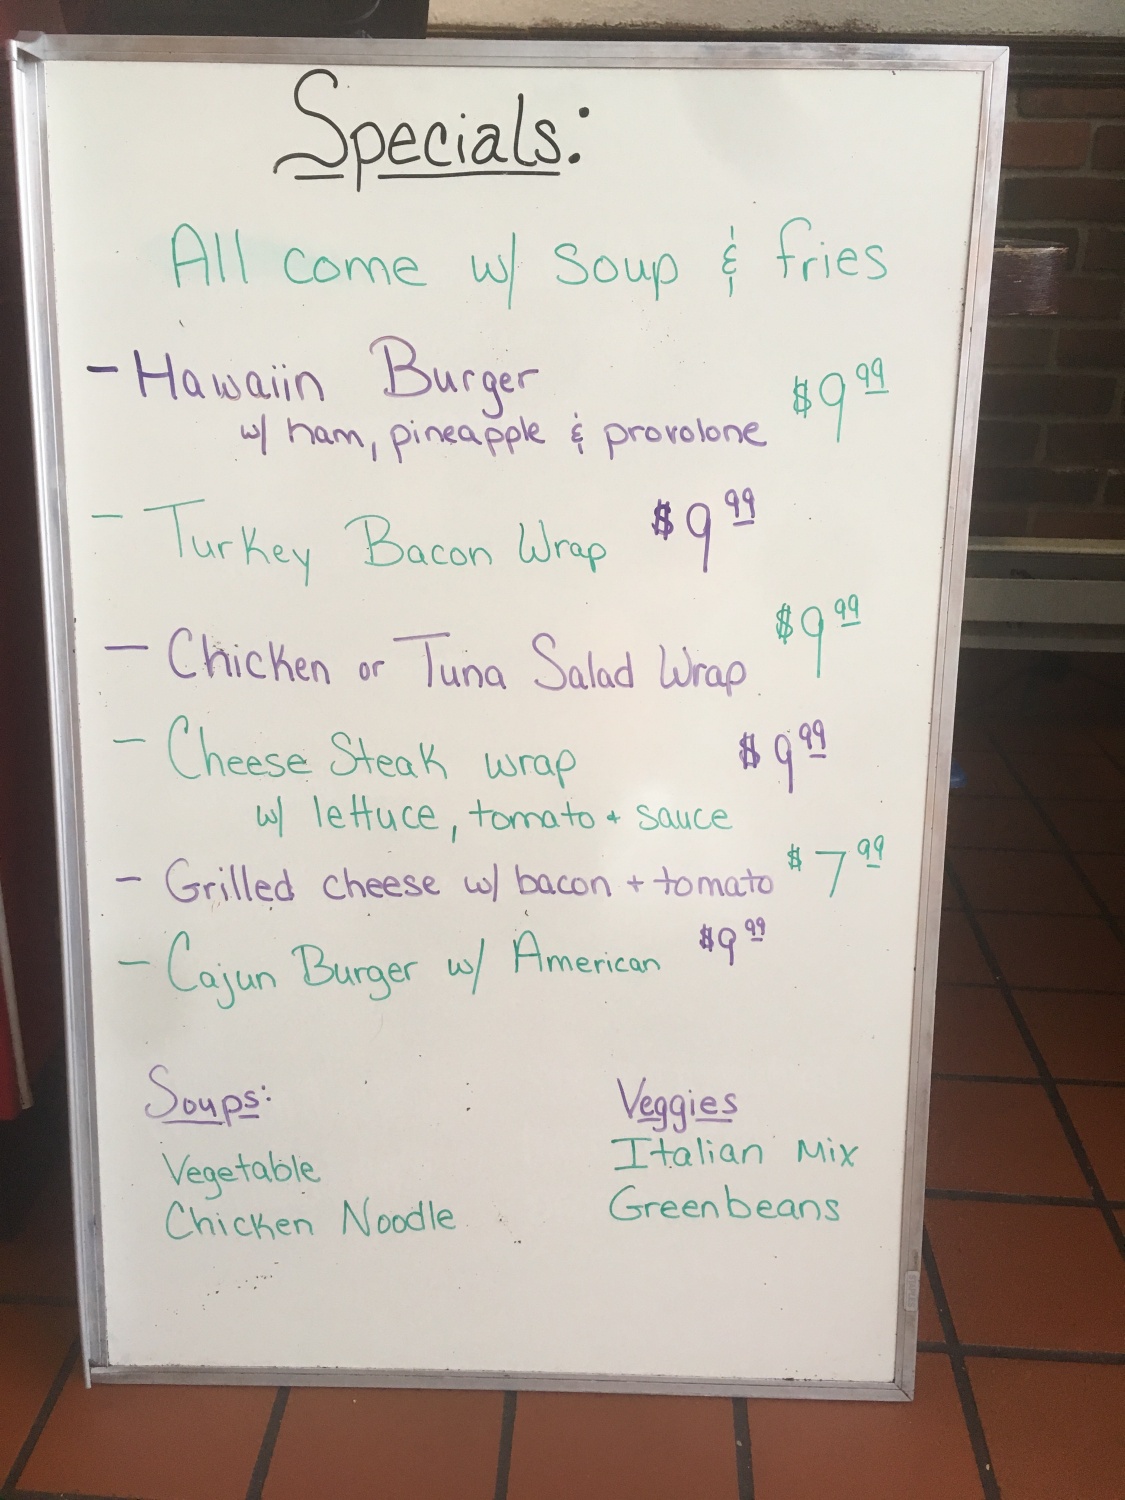 Specials:
All come w/ soup & fries
- Hawaiin Burger $9.99
w/ ham, pineapple & provolone
- Turkey Bacon Wrap $9.99
- Chicken or Tuna Salad Wrap $9.99
- Cheese Steak wrap $9.99
w/ lettuce, tomato + sauce
- Grilled cheese w/ bacon + tomato $7.99
- Cajun Burger w/ American $9.99
Soups:
Vegetable
Chicken Noodle
Veggies
Italian Mix
Greenbeans